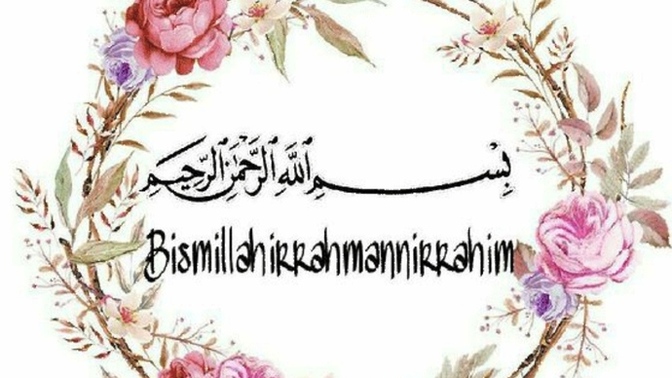 بِسْمِ اللَّهِ الرَّحْمَٰنِ الرَّحِيمِ
Bismillahirrahmannirrahim